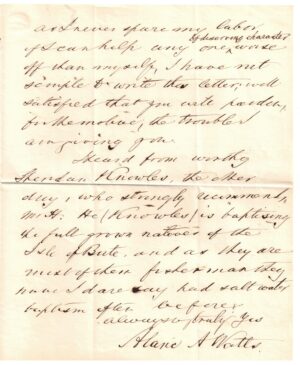 as I never spare my labor,
& discerning character
if I can help any one worse
off than myself, I have not
scrupled to write this letter, well
satisfied that you will pardon,
for the motive, the trouble I
am giving you.
I heard from worthy
Sheridan Knowles, the other
day, who strongly recommends
Mr H: He (Knowles) is baptising
the full grown natives of the
Isle of Bute, and as they are
most of them fishermen they
have I dare say had salt water
baptism often before,
always truly Yrs
Alaric A Watts.